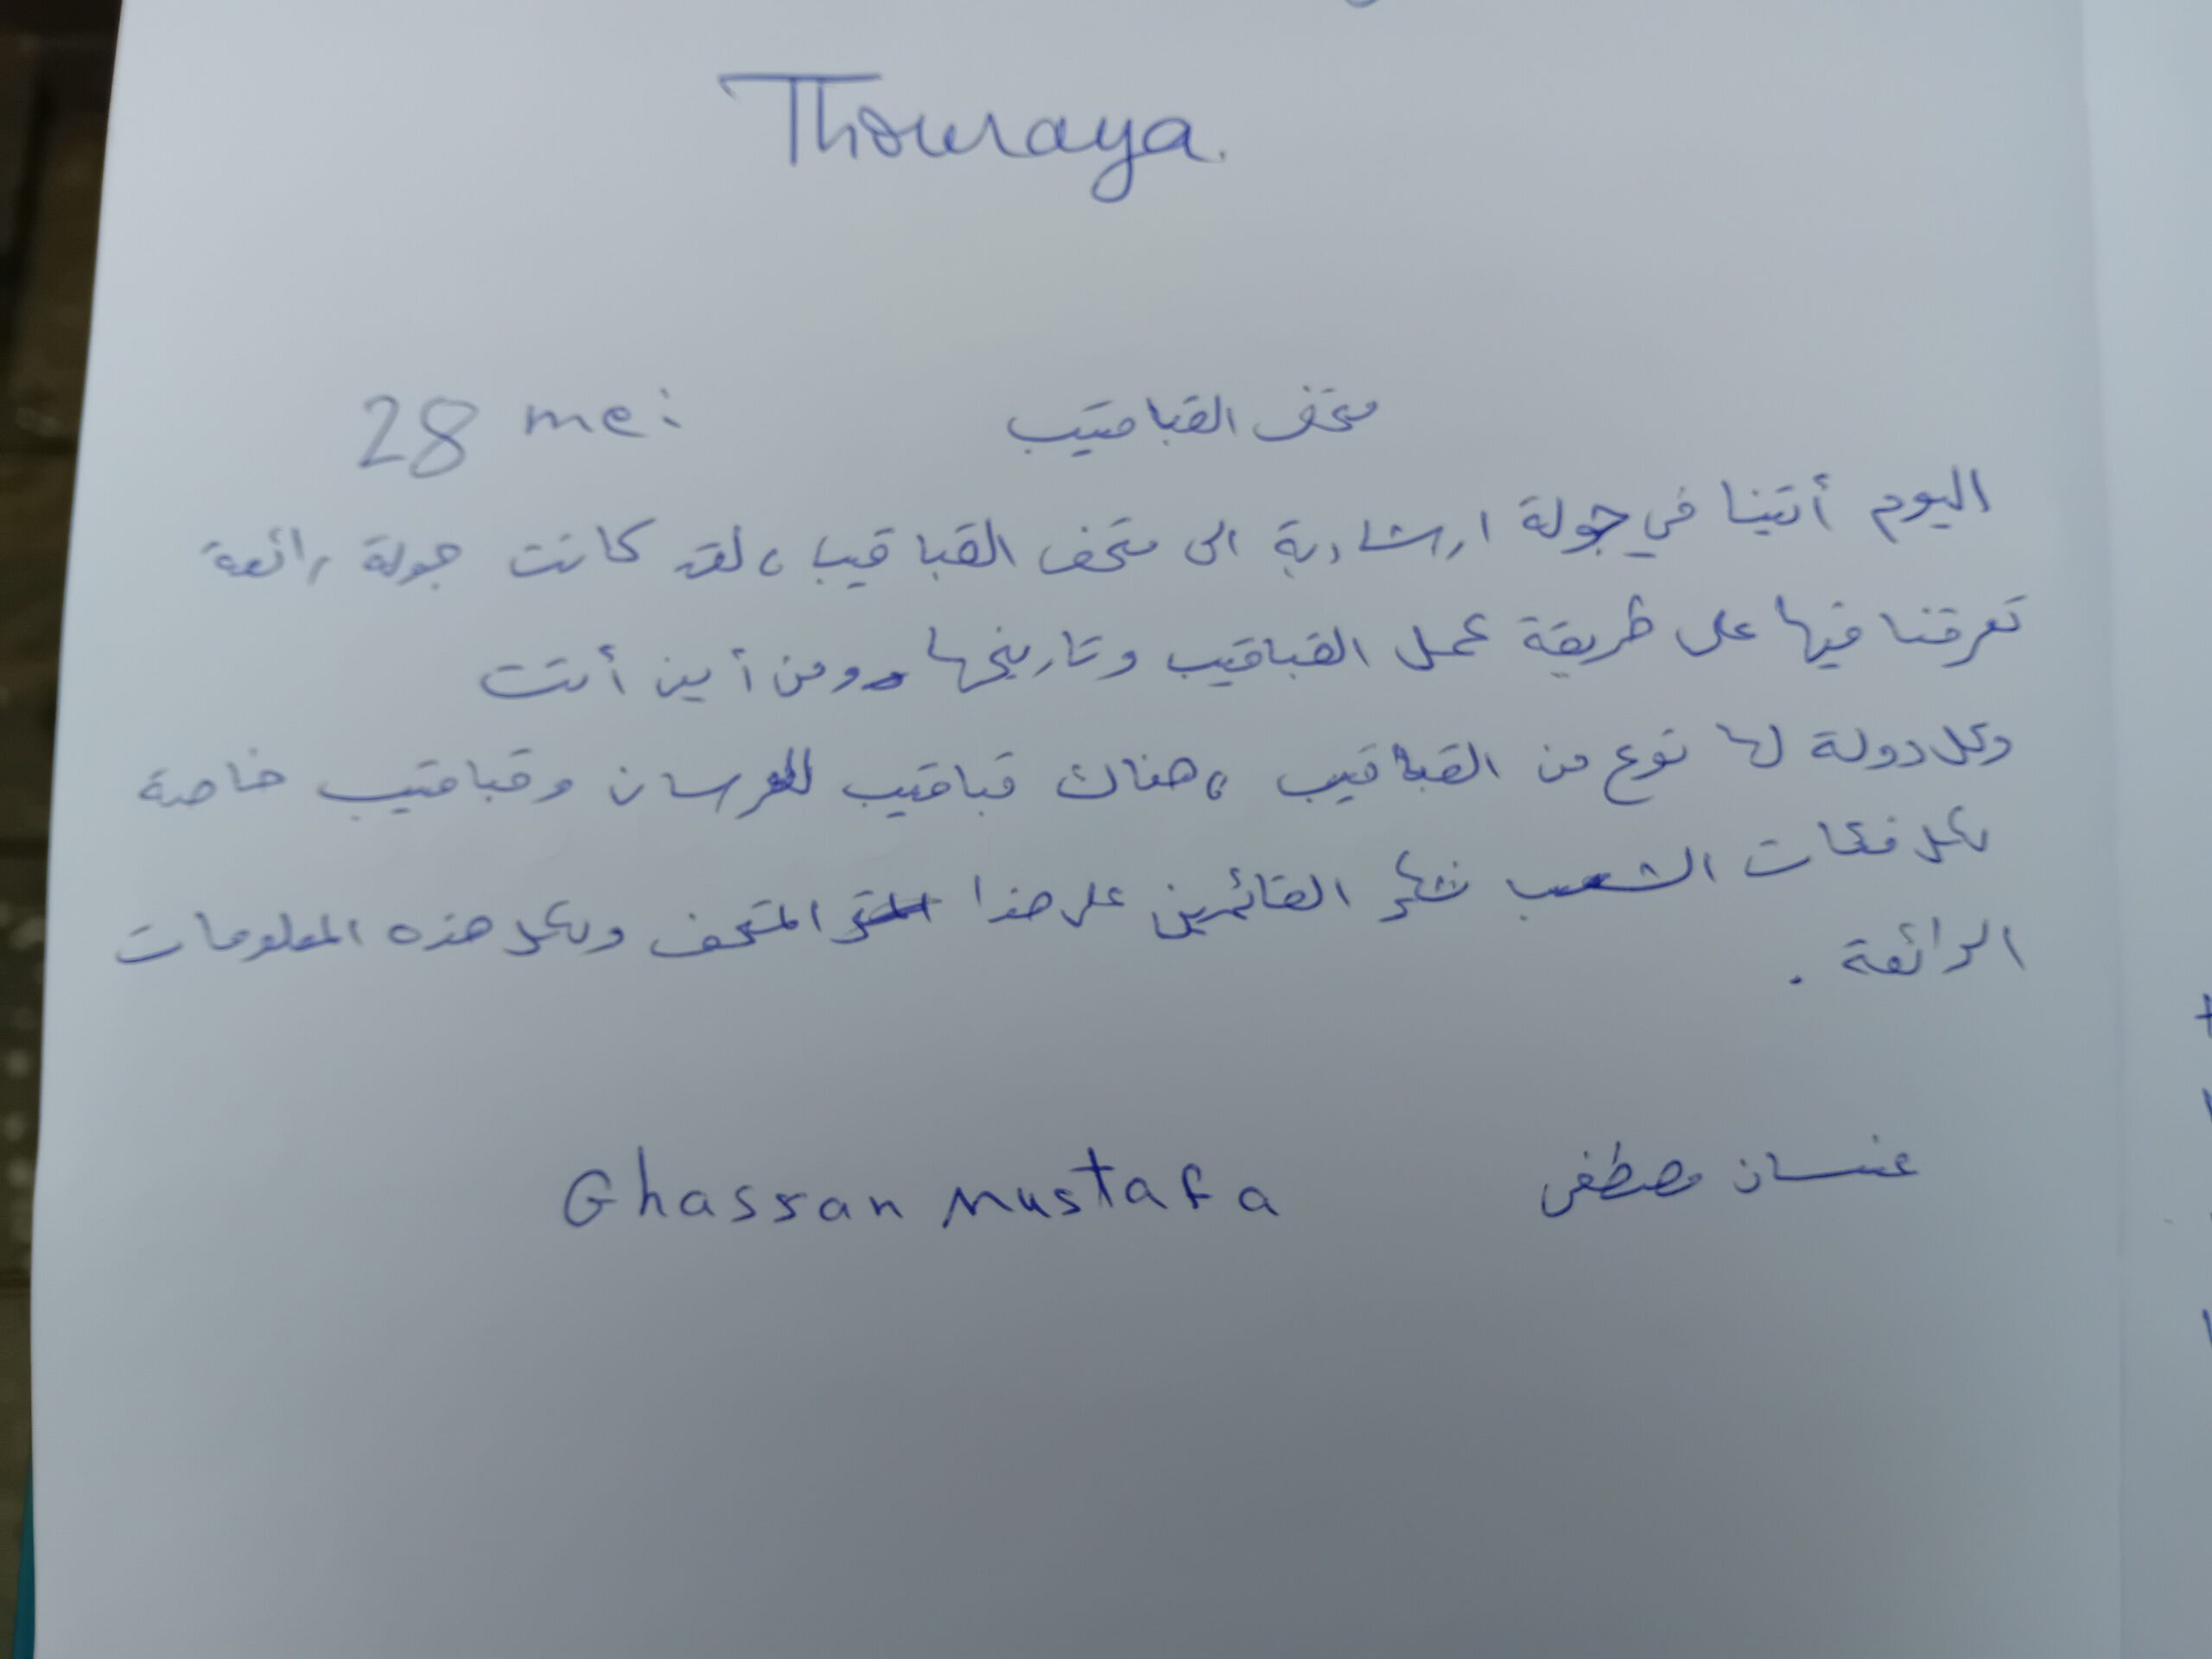 Thouraya.
متحف القباقيب 28 mei
اليوم أتينا في جولة ارشادية الى متحف القباقيب، لقد كانت جولة رائعة
تعرفنا فيها على طريقة عمل القباقيب وتاريخها ومن أين أتت
وكل دولة لها نوع من القباقيب، هناك قباقيب للعرسان وقباقيب خاصة
بكل فئات الشعب شكر القائمين على هذا المتحف وبكل هذه المعلومات
الرائعة .
غسان مصطفى Ghassan Mustafa